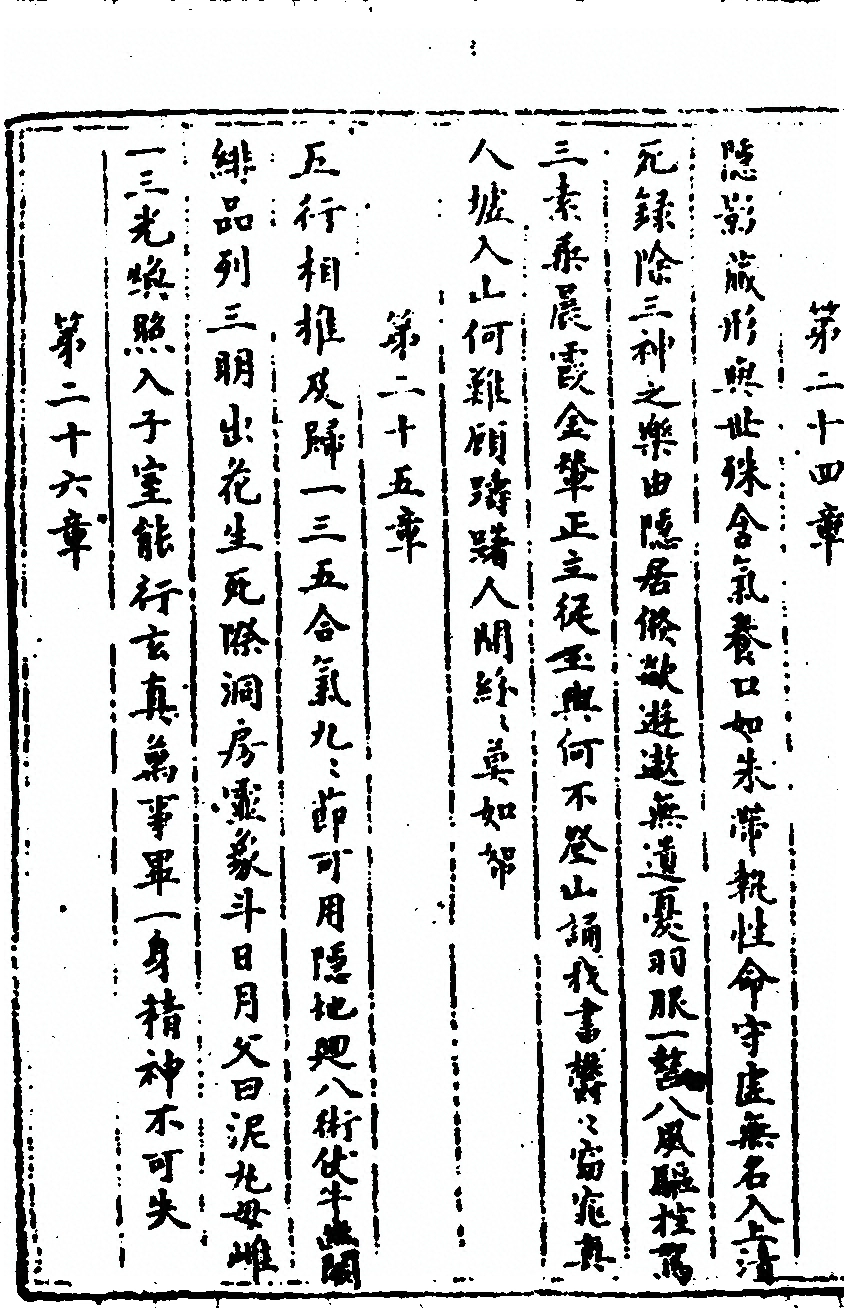 第二十四章
隱影藏形與世殊含氣養口如朱帶執性命守虛無名入上清
死録除三神之樂由隱居倏欻遊遨無遺憂羽服一整八風驅控駕
三素乘晨霞金輦正立從玉輿何不登山誦我書欝〻窈窕真
人墟入山何難顧躊躇人間紛〻莫如帤
第二十五章
五行相推及歸一三五合氣九〻節可用隱地廻八術伏牛幽闕
緋品列三明出花生死際洞房靈象斗日月父曰泥丸母雌
一三光煥照入子室能行玄真萬事畢一身精神不可失
第二十六章